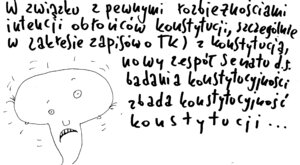 W związku z pewnymi rozbieżnościami
intencji obrońców konstytucji, szczególnie
w zakresie zapisów o TK) z konstytucją,
nowy zespół Senatu d.s.
badania konstytucyjności
zbada konstytucyjność
konstytucji...